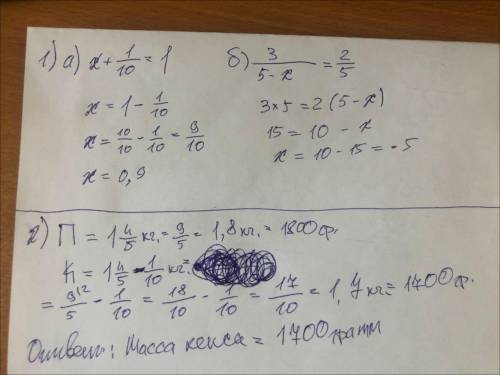 1) а) x + 1/10 = 1
x = 1 - 1/10
x = 10/10 - 1/10 = 9/10
x = 0,9
б) 3/(5-x) = 2/5
3×5 = 2(5-x)
15 = 10 - x
x = 10-15 = -5
2) П = 1 4/5 кг. = 9/5 = 1,8 кг. = 1800 гр.
К = 1 4/5 - 1/10 кг. =
= 9/5 - 1/10 = 18/10 - 1/10 = 17/10 = 1,7 кг = 1700 гр.
Ответ: Масса кекса = 1700 грамм